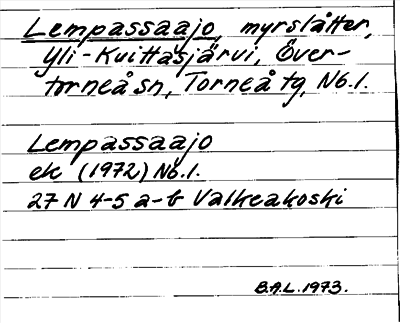 Lempassaajo, myrslåtter,
Yli-Kuittasjärvi, Över-
torneå sn, Torneå tg, Nb.l.
Lempassaajo
ek (1972) Nb.l.
27 N 4-5 a-b Valkeakoski
B.A.L. 1973.